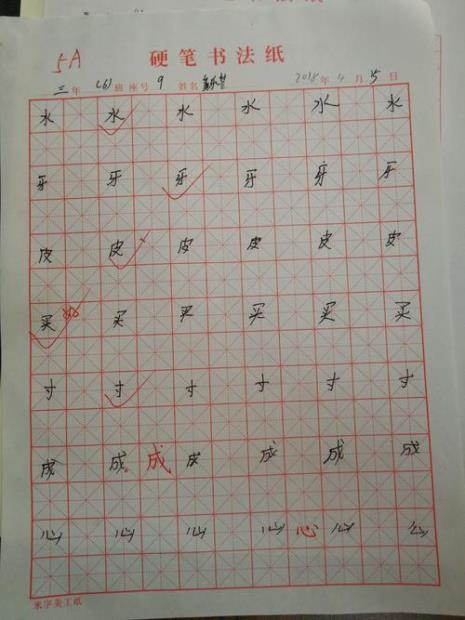 5A 硬笔书法纸
三年(6)班座号9 姓名 2018年4月15日
水 水 水 水 水 水
牙 牙 牙 牙 牙 牙
皮 皮 皮 皮 皮 皮
买 买 买 买 买 买
寸 寸 寸 寸 寸 寸
成 成 成 成 成 成
心 心 心 心 心 心 心
米字美工纸